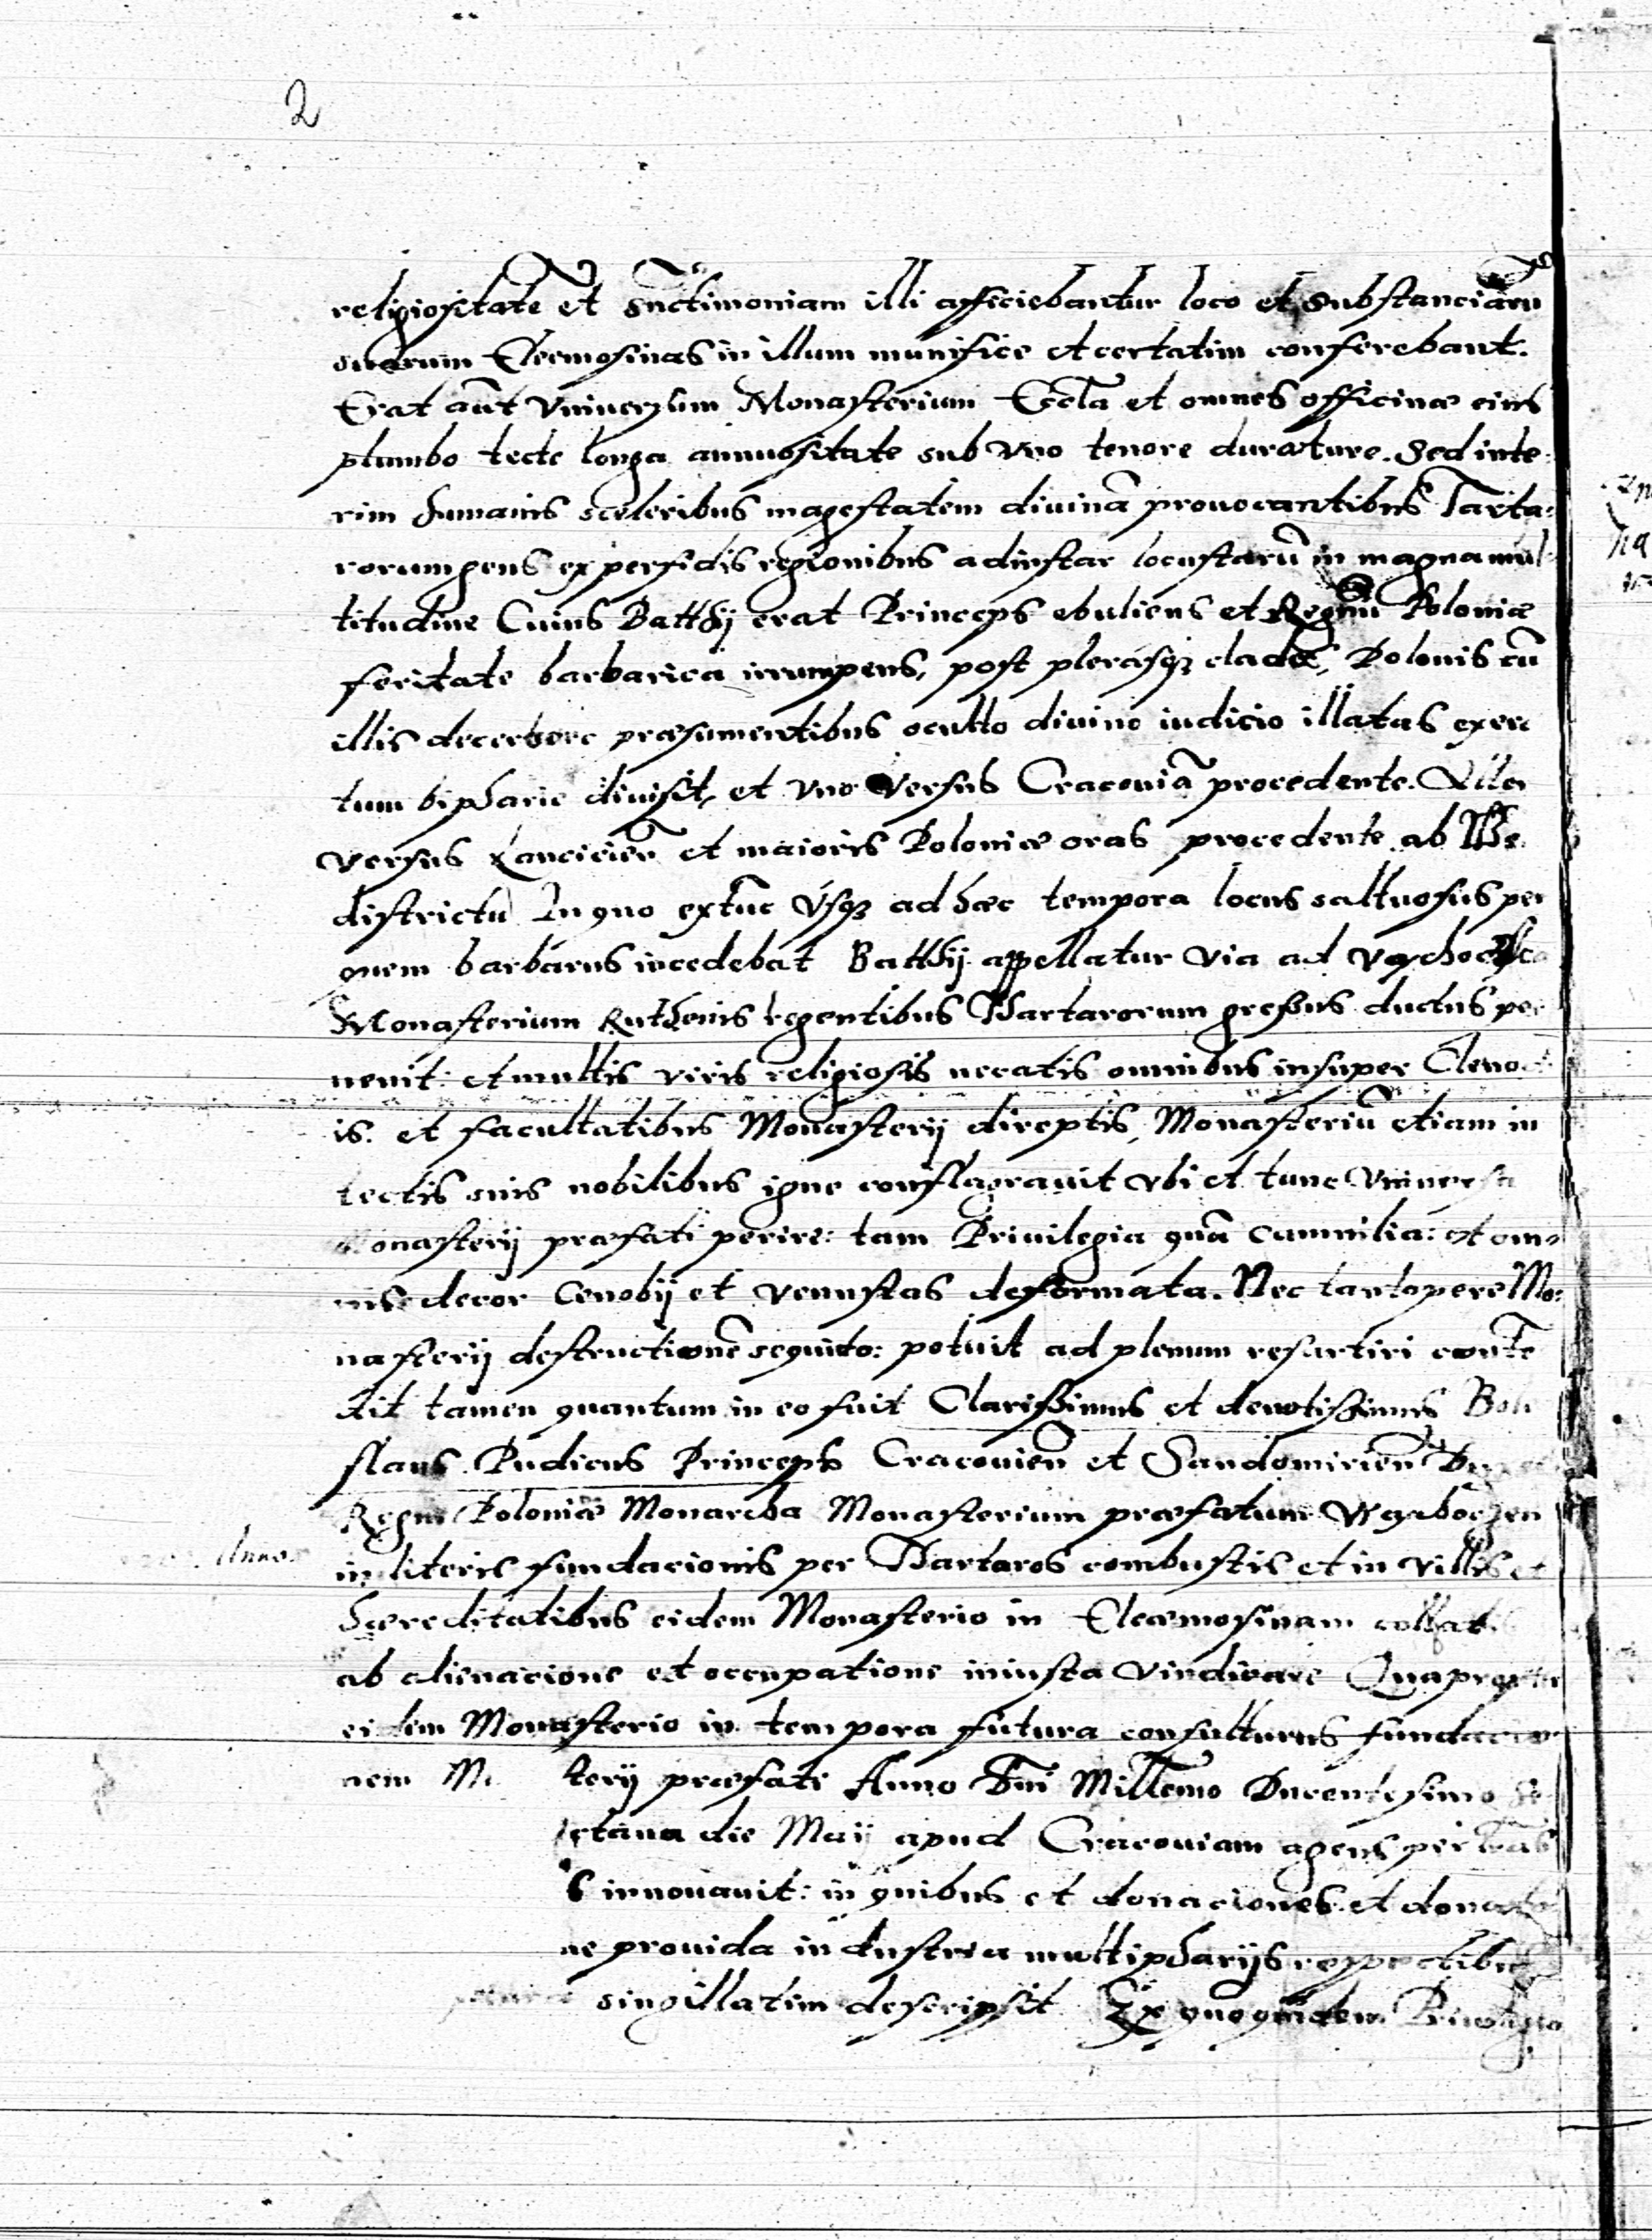 2
religiositatē et snctimoniam illi afficiebantur loco et substanciarū
suarum Eleemosinas in illum munifice et certatim conferebant.
Erat aūt vniuersum Monasterium Eccla et omnes officinæ eius
plumbo tecte longa annuositate sub vno tenore durature. Sed inte
rim humanis sceleribus magestatem diuinā prouocantibus Tarta:
rorum gens ex perfidis regionibus ad instar locustarū in magna mul
titudine Cuius Batthij erat Princeps ebuliens et Regnū Poloniæ
feritate barbarica irrumpens, post plerasqz clades, Polonis cū
illis decertare præsumentibus oculto diuino iudicio illatas exerc
tum bipharie diuisit, et vno versus Cracouiā procedente. Alter
versus Lanciciēn et maioris Poloniæ oras procedente ab
districtu In quo extunc vsqz ad hæc tempora locus saltuosus per
quem barbarus incedebat Batthij appellatur via ad
Monasterium Ruthenis regentibus Thartarorum gressus ductus per
uenit: et multis viris religiosis necatis omnibus insuper Cleno
is. et facultatibus Monasterij direptis, Monasteriū etiam in
tectis suis nobilibus igne conflagrauit vbi et tunc vniuersa
Monasterij præfati perire: tam Priuilegia quā : et om
nis decor Cenobij et venustas deformata. Nec tantopere Mo:
nasterij destructionē sequuto: potuit ad plenum resartiri conte
dit tamen quantum in eo fuit Clarissimus et deuotissimus Bole
slaus Pudicus Princeps Cracouiēn et Sandomiriēn
Regni Poloniæ Monarcha Monasterium præfatum
Anno
in literis fundacionis per Thartaros combustis et in villis et
hæreditatibus eidem Monasterio in Eleæmosinam collat
ab alienacione et occupatione iniusta vindicare Quapropter
eidem Monasterio in tempora futura consulturus fundacio
nem M terij præfati Anno Dni Millemo Ducentesimo
ctaua die Maij apud Cracouiam agens per
s innouauit: in quibus et donaciones et
ne prouida industria multipharijs respectibus
singillatim descripsit Ex quoquidem